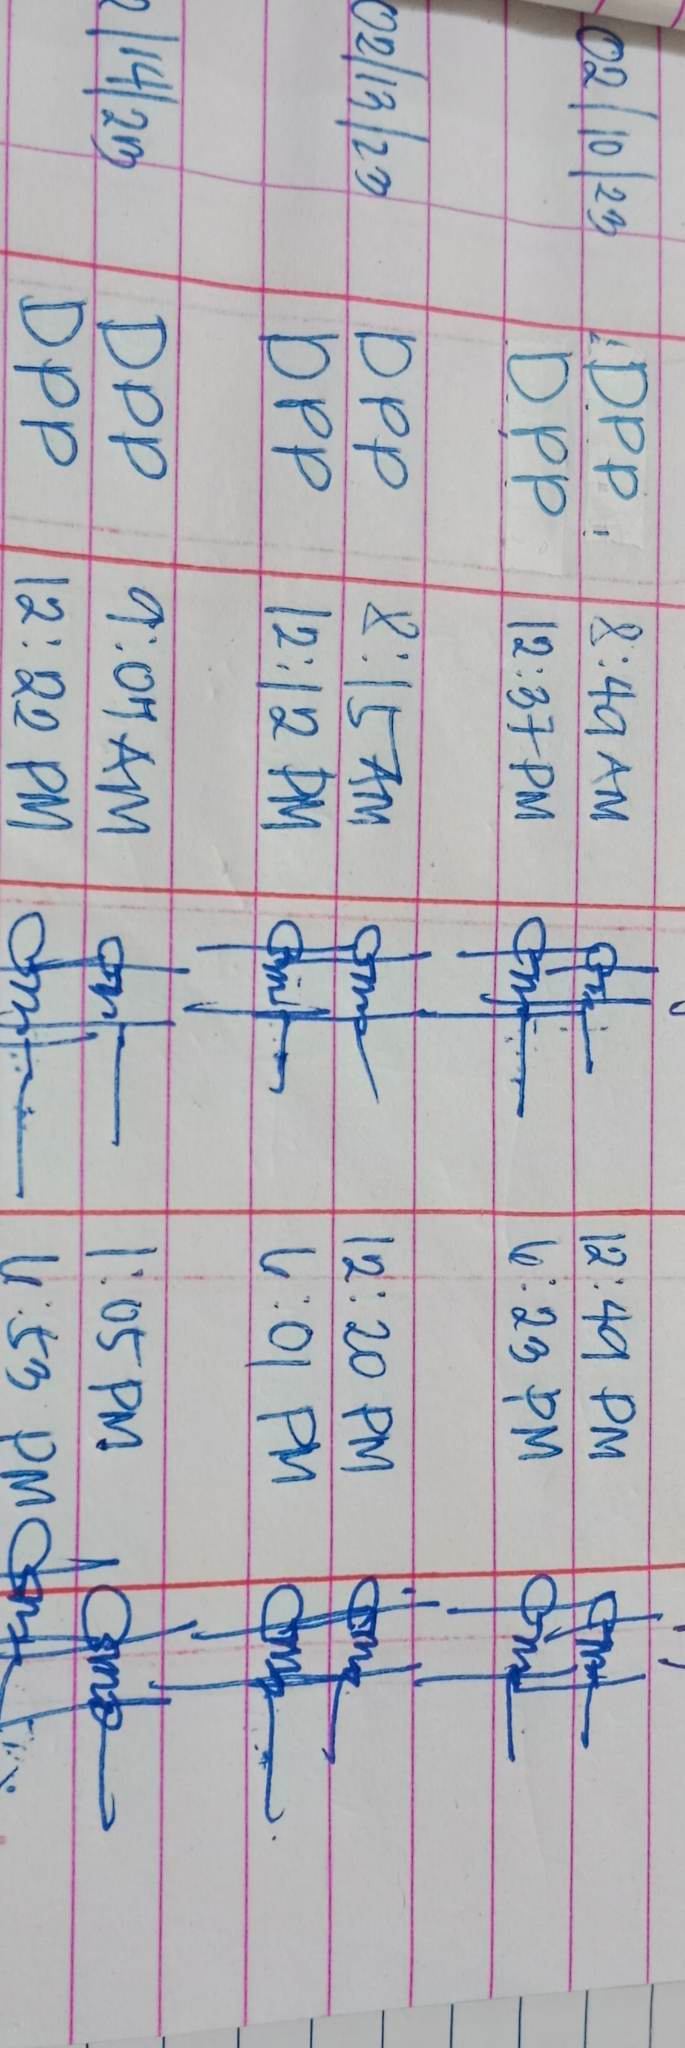 02/10/23 DPP 8:49 AM 12:49 PM
DPP 12:37 PM 6:23 PM
02/13/23 DPP 8:15 AM 12:20 PM
DPP 12:12 PM 6:01 PM
2/14/23 DPP 9:07 AM 1:05 PM
DPP 12:22 PM 6:53 PM